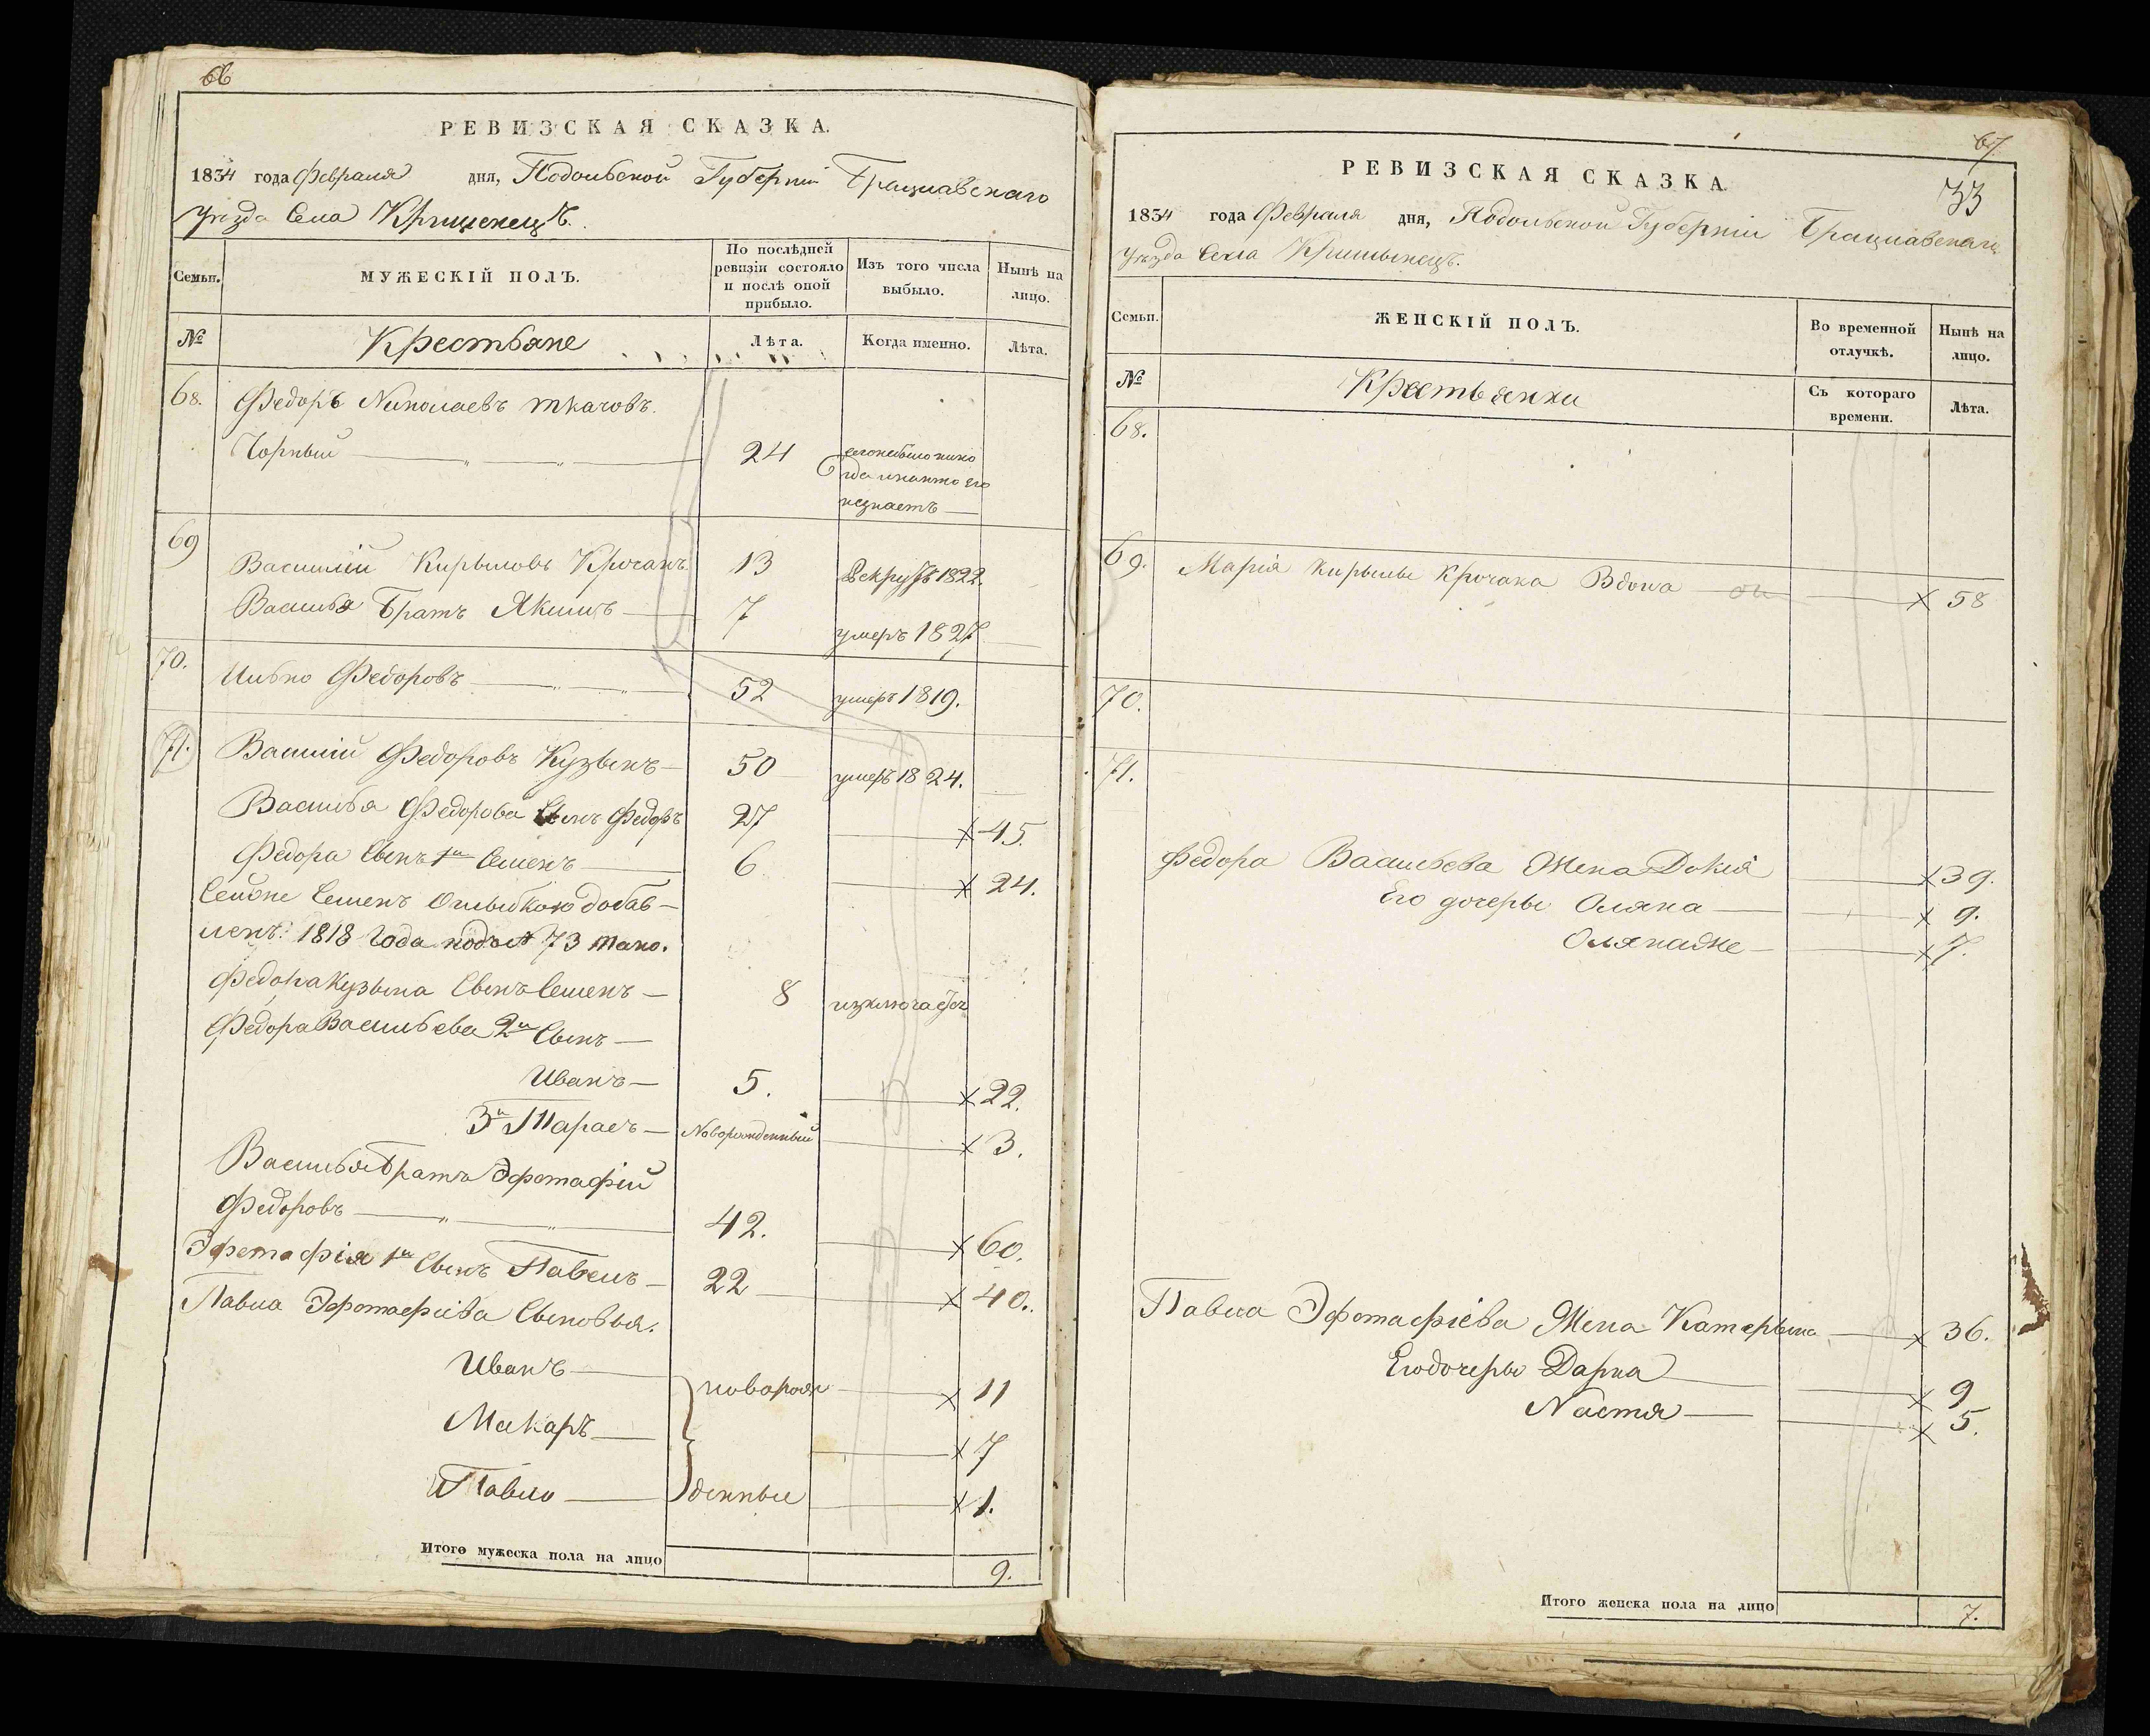 66
РЕВИЗСКАЯ СКАЗКА.
1834 года Февраля дня, Подольской Губерніи Брацлавскаго
уѣзда Села Крищенецъ.
Семьи.
МУЖЕСКІЙ ПОЛЪ.
По послѣдней
ревизіи состояло
и послѣ оной
прибыло.
Изъ того числа
выбыло.
Нынѣ на
лицо.
№
Крестьяне
Лѣта.
Когда именно.
Лѣта.
68. Федоръ Николаевъ ткачовъ.
Чорный 24
его небыло нико
гда и никто его
незнаетъ
69 Василій Кирыловъ Крочакъ 13 Рекрутъ 1822.
Василья Братъ Якимъ 7 умеръ 1827
70. Илько Федоровъ 52 умеръ 1819.
71. Василій Федоровъ Кузьинъ 50 умеръ 1824.
Василья Федорова Сынъ Федоръ 27 45.
Федора Сынъ 1й Семенъ 6 24.
Сейже Семенъ Ошыбкою добав-
ленъ: 1818 Года подъ № 73 тако.
Федора Кузьина Сынъ Семенъ 8 изключается
Федора Васильева 2й Сынъ
Иванъ 5. 22.
3й Тарасъ Новорожденный 3.
Василья Братъ Эфтафій
Федоровъ 42. 60.
1й Сынъ Павелъ 22 40.
Павла Сыновья.
Иванъ новорож 11
Макаръ 7
Павло денные 1.
Итого мужеска пола на лицо 9.
67
33
РЕВИЗСКАЯ СКАЗКА.
1834 года Февраля дня, Подольской Губерніи Брацлавскаго
уѣзда Села
Семьи.
ЖЕНСКІЙ ПОЛЪ.
Во временной
отлучкѣ.
Нынѣ на
лицо.
№
Крестьянки
Съ котораго
времени.
Лѣта.
68.
69. Марія Кирылы Крочака Вдова 58
70.
71.
Федора Васильева Жена Докія 39.
Его дочеры Оляна 9.
Олянаже 7.
Павла Жена Катерына 36.
Его дочеры Дарка 9
Настя 5.
Итого женска пола на лицо 7.